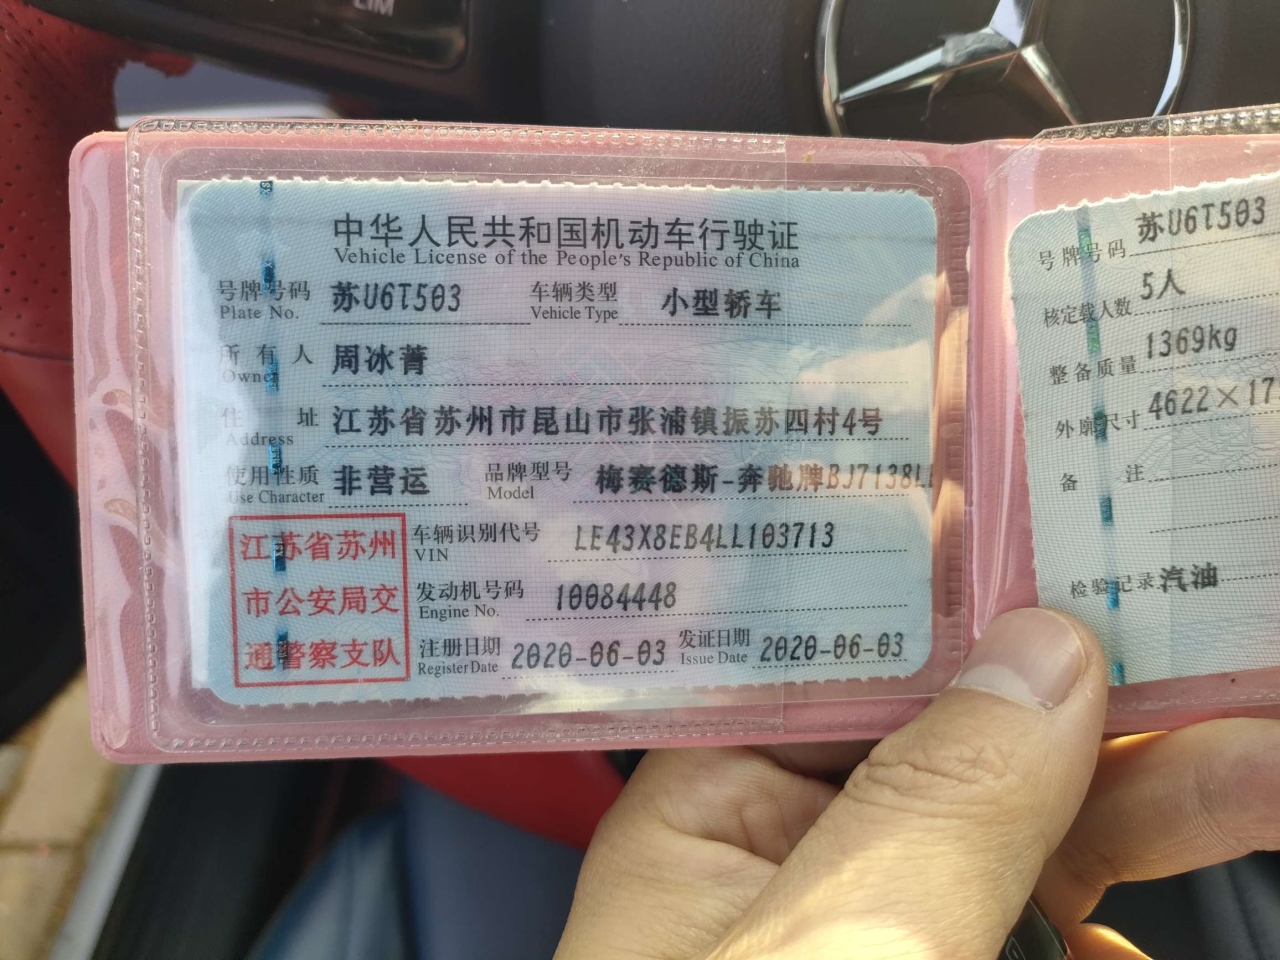 中华人民共和国机动车行驶证
Vehicle License of the People's Republic of China
号牌号码 苏U6T503 车辆类型 小型轿车
Plate No. Vehicle Type
所有人 周冰菁
Owner
住址 江苏省苏州市昆山市张浦镇振苏四村4号
Address
使用性质 非营运 品牌型号 梅赛德斯-奔驰牌BJ7138L
Use Character Model
江苏省苏州
市公安局交
通警察支队
车辆识别代号 LE43X8EB4LL103713
VIN
发动机号码 10084448
Engine No.
注册日期 2020-06-03 发证日期 2020-06-03
Register Date Issue Date
号牌号码 苏U6T503
核定载人数 5人
整备质量 1369kg
外廓尺寸 4622×17
备注
检验记录 汽油